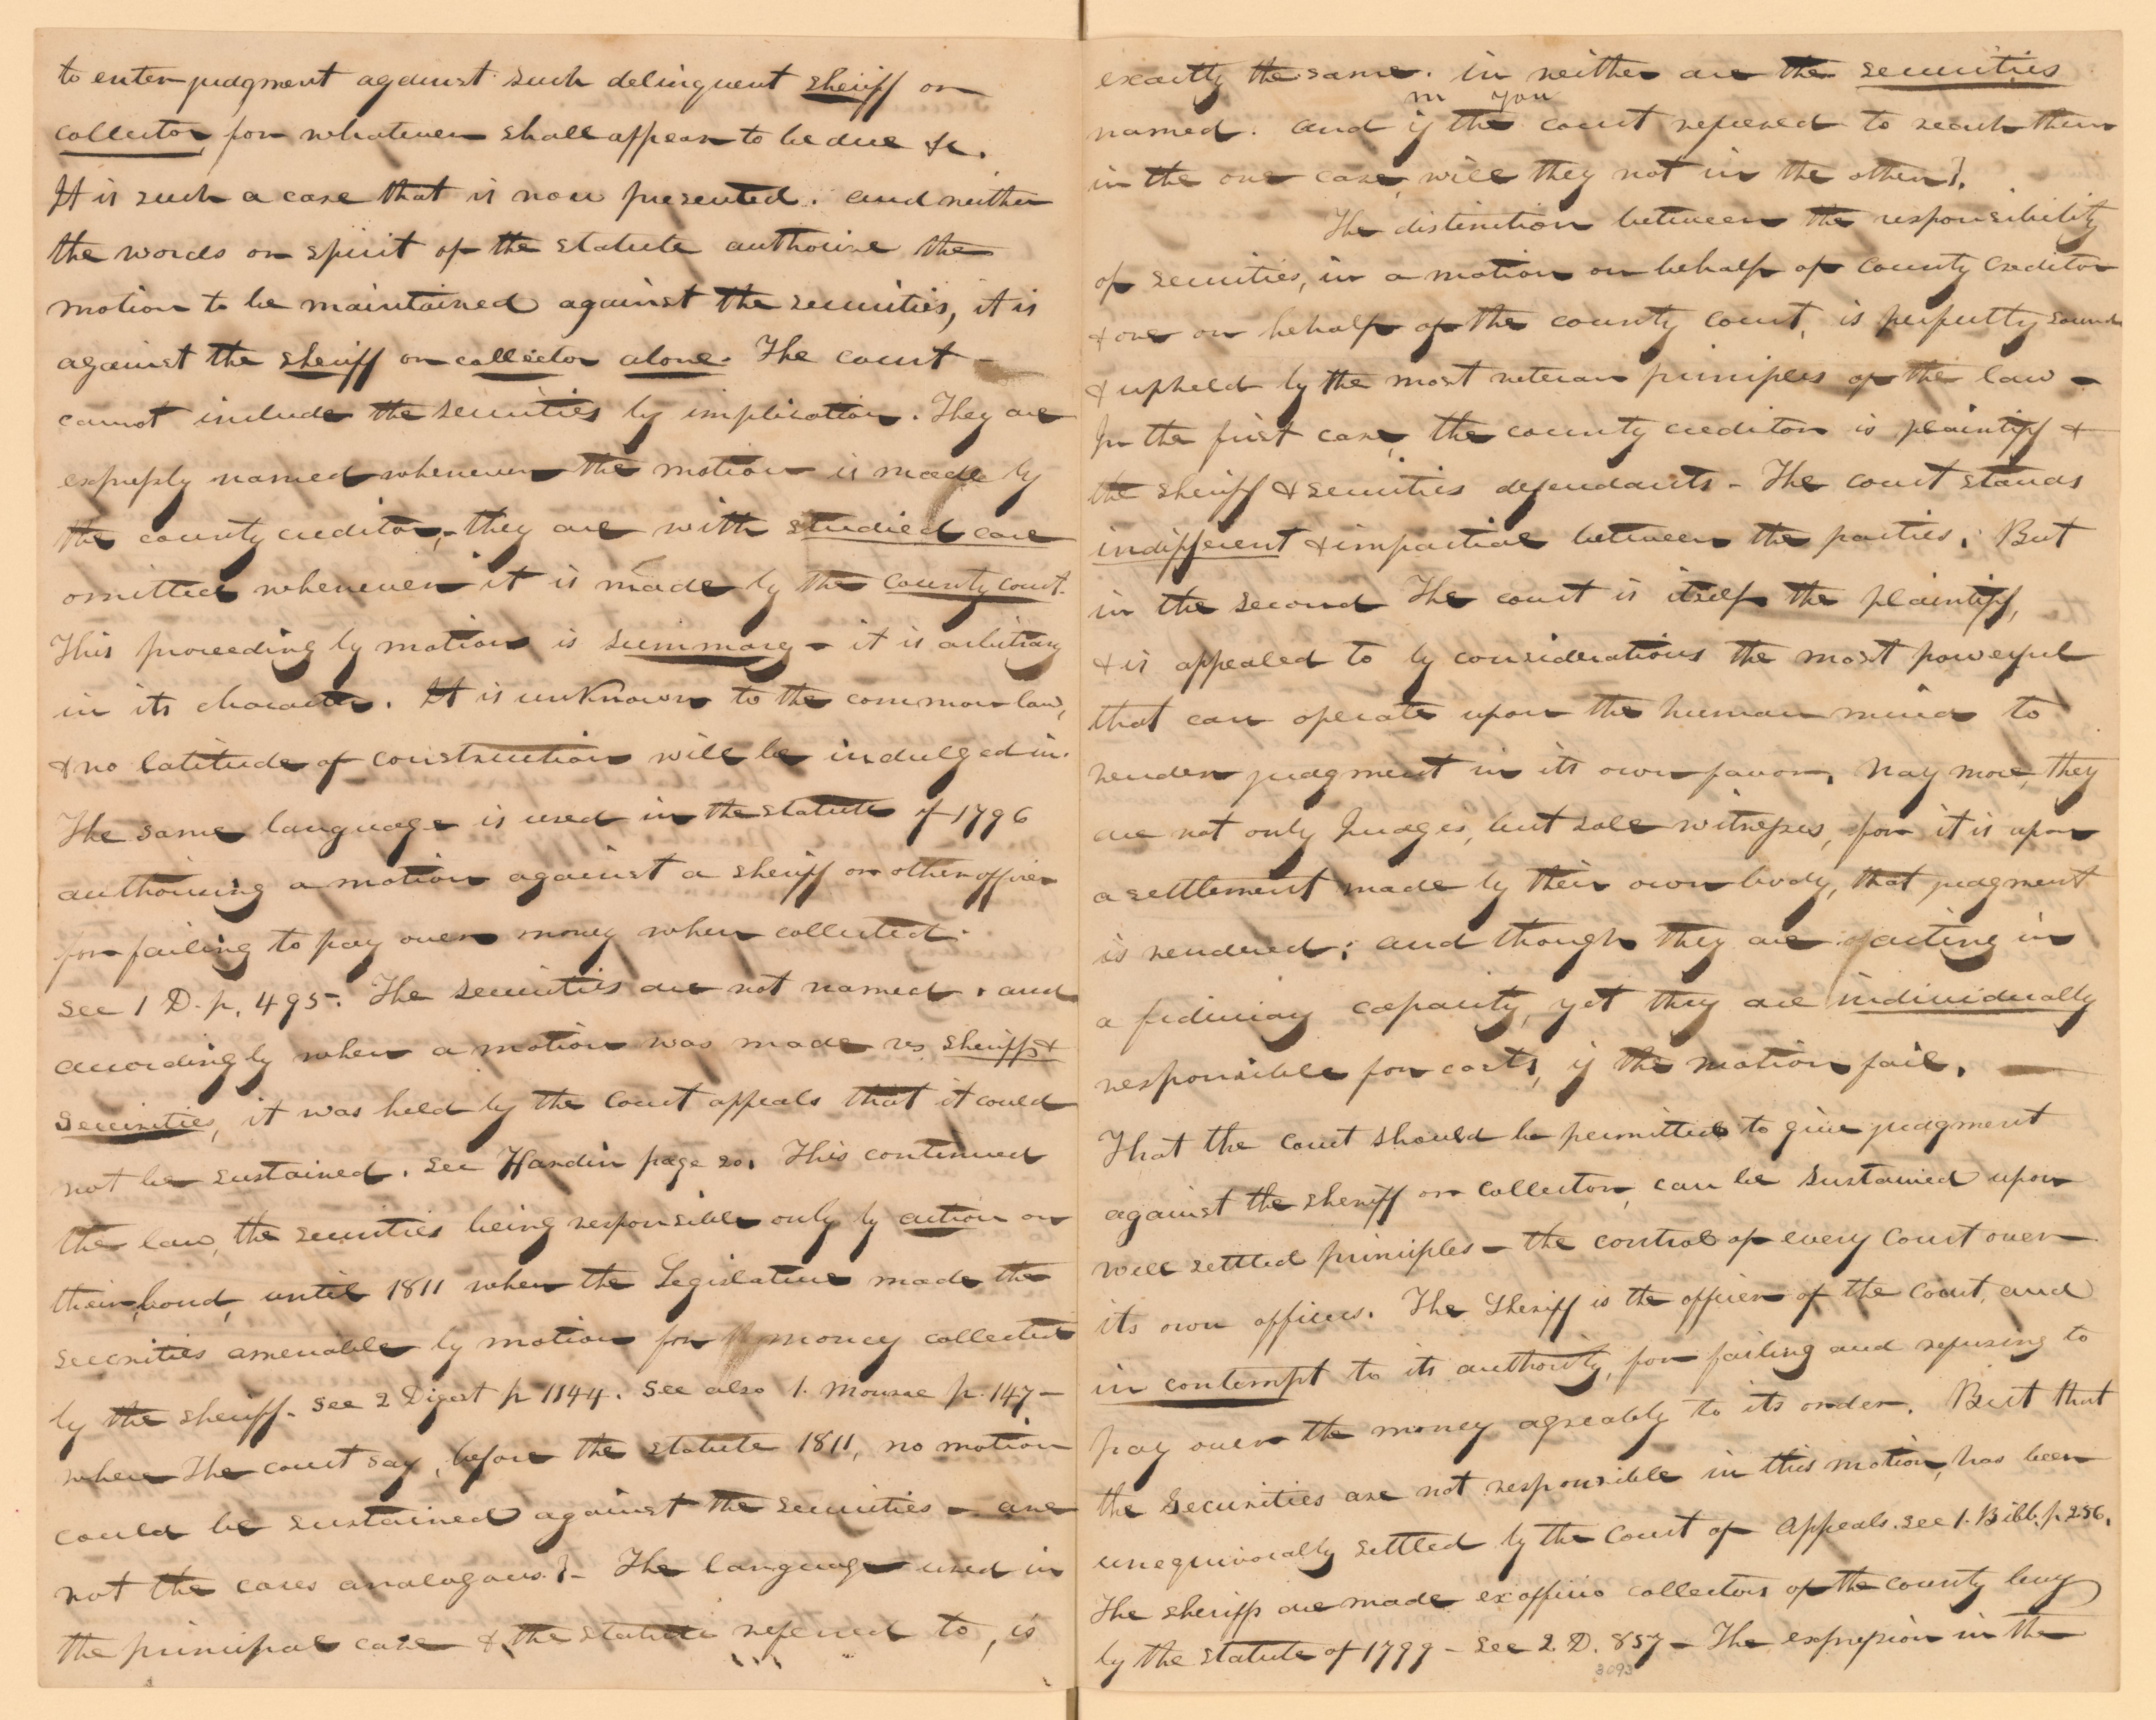 to enter judgment against such delinquent sheriff or
collector, for whatever shall appear to be due &c.
It is such a case that is now presented. and neither
the words or spirit of the statute authorise the
motion to be maintained against the securities, it is
against the sheriff or collector alone. The court -
cannot include the securities by implication. They are
expressly named whenever the motion is made by
the county creditor,- they are with studied care
omitted whenever it is made by the county court.
This proceeding by motion is summary - it is arbitrary
in its character. It is unknown to the common law,
& no latitude of construction will be indulged in.
The same language is used in the statute of 1796
authorising a motion against a sheriff or other officer
for failing to pay over money when collected.
See 1 D. p. 495. The securities are not named. and
accordingly when a motion was made vs sheriff &
securities, it was held by the Court appeals that it could
not be sustained. See Hardin page 20. This continued
the law, the securities being responsible only by action on
their bond, until 1811 when the Legislature made the
securities amenable by motion for money collected
by the sheriff. See 2 Digest p 1144. See also 1. Monroe p. 147-
where The court say, before the statute 1811, no motion
could be sustained against the securities - are
not the cases analogous?- The language used in
the principal case & the statute referred to, is
exactly the same. in neither are the securities
m you
named. and if the court refused to reach them
in the one case, will they not in the other?.
The distinction between the responsibility
of securities, in a motion on behalf of county creditor
& one on behalf of the county court, is perfectly sound
& upheld by the most veteran principles of the law -
In the first case, the county creditor is plaintiff &
the sheriff & securities defendants - The court stands
indifferent & impartial between the parties. But
in the second The court is itself the plaintiff,
& is appealed to by considerations the most powerful
that can operate upon the human mind to
render judgment in its own favor. Nay more, they
are not only Judges, but sole witnesses, for it is upon
a settlement made by their own body, that judgment
is rendered; and though they are acting in
a fiduciary capacity, yet they are individually
responsible for costs, if the motion fail. -
That the court should be permitted to give judgment
against the sheriff or collector, can be sustained upon
well settled principles - the control of every Court over
its own officers. The Sheriff is the officer of the Court, and
in contempt to its authority, for failing and refusing to
pay over the money agreably to its order. But that
the Securities are not responsible in this motion, has been
unequivocally settled by the Court of Appeals. See 1. Bibb. p. 256.
The sheriffs are made exofficio collectors of the county levy
by the statute of 1799 - See 2. D. 857 - The expression in the
3093